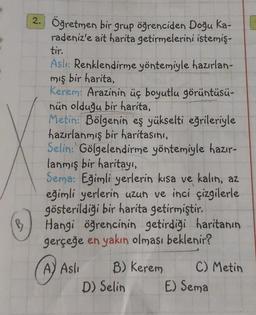 2. Öğretmen bir grup öğrenciden Doğu Ka-
radeniz'e ait harita getirmelerini istemiş-
tir.
Aslı: Renklendirme yöntemiyle hazırlan-
mış bir harita,
Kerem: Arazinin üç boyutlu görüntüsü-
nün olduğu bir harita,
Metin: Bölgenin eş yükselti eğrileriyle
hazırlanmış bir haritasını,
Selin: Gölgelendirme yöntemiyle hazır-
lanmış bir haritayı,
Sema: Eğimli yerlerin kısa ve kalın, az
eğimli yerlerin uzun ve inci çizgilerle
gösterildiği bir harita getirmiştir.
B) Hangi öğrencinin getirdiği haritanın
gerçeğe en yakın olması beklenir?
A) Aslı B) Kerem C) Metin
D) Selin E) Sema